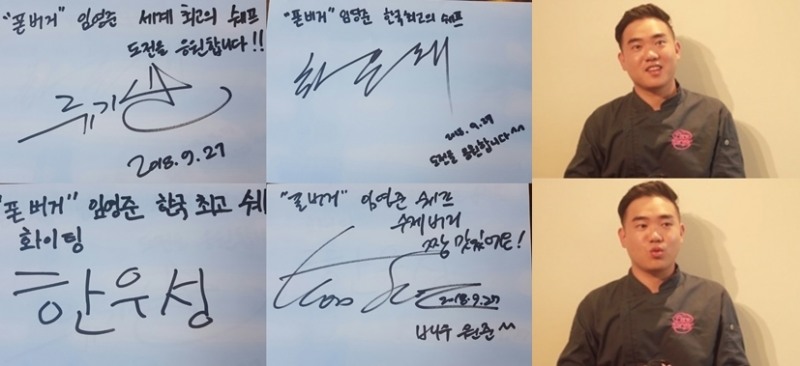 "폰버거" 임영준 세계 최고의 쉐프
도전을 응원합니다!!
류기산
2018.9.27
"폰버거" 임영준 한국최고의 쉐프
2018.9.27
도전을 응원합니다 ^^
"폰버거" 임영준 한국 최고 쉐
화이팅
한우성
임영준 쉐프
수제버거
짱 맛있어요!
2018.9.27
배우 원준 ^^